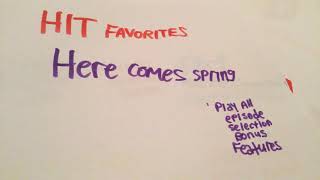 HIT FAVORITES
Here comes spring
Play All
episode
selection
Bonus
Features